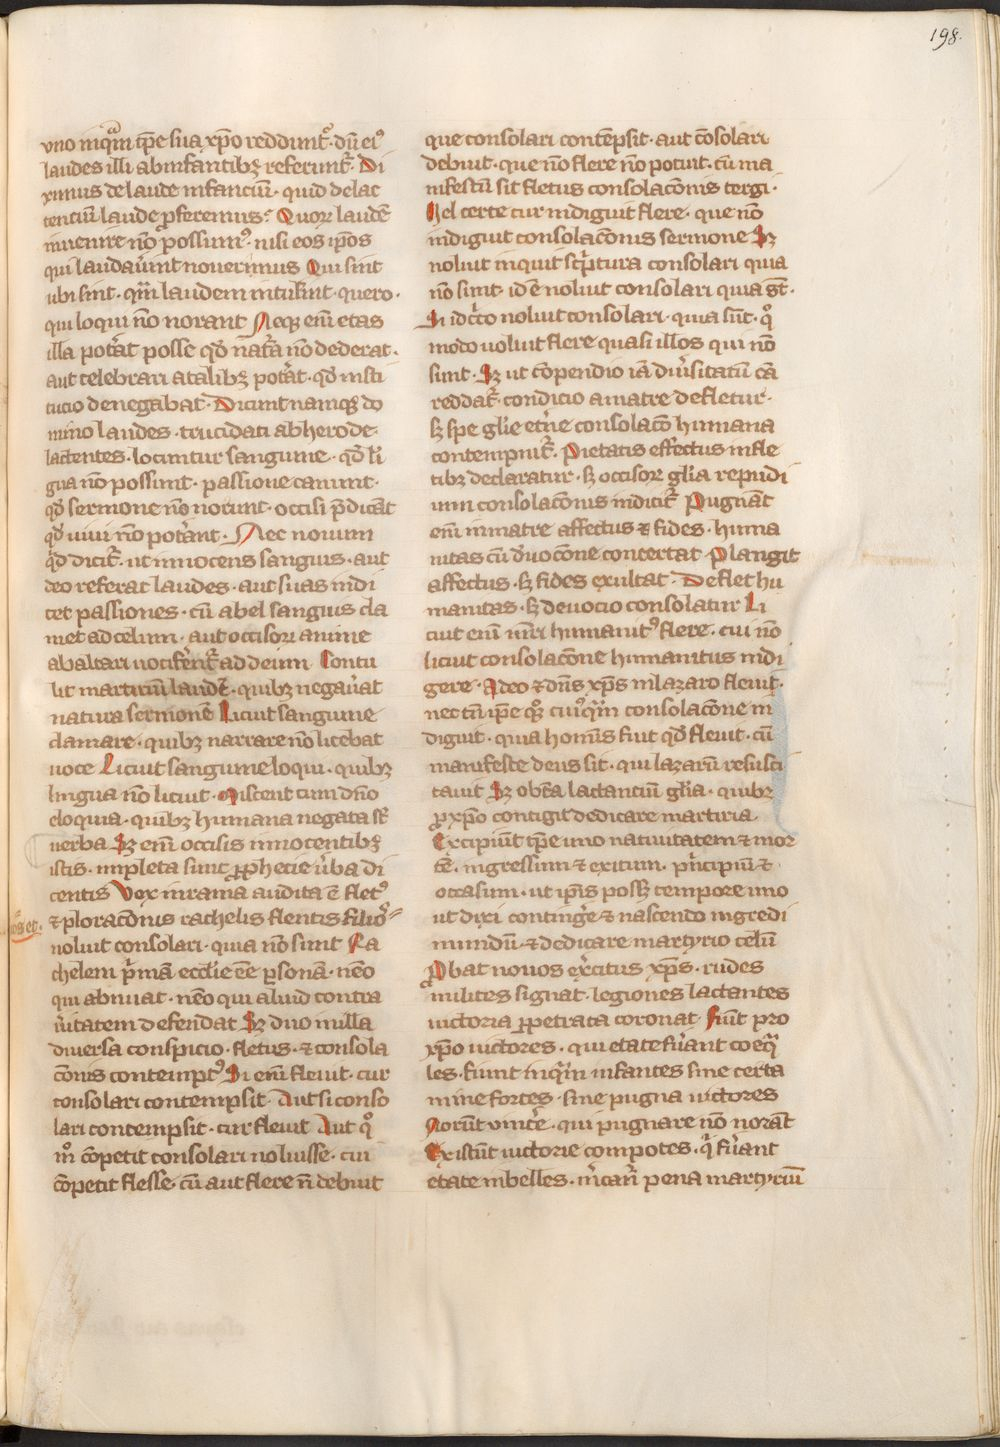 198.
vno inqᵃm tꝑe sua xp̄o redduntᷣ· dū eiꝰ
laudes illi ab infantibꝫ referuntᷣ· Di
ximus de laude infanciū· quid de lac
tenciū laude ꝓferemus? Quoꝝ laudē
inuenire nō possumꝰ· nisi eos ip̄os
qui laudau̇int nouerimus Qui sint
ubi sint· qm̄ laudem intulint· quero·
qui loqui nō norant Neqꝫ em̄ etas
illa potāt posse qd̄ nat̄a nō dederat·
aut celebrari a talibꝫ potāt· qd̄ insti
tucio denegabat· Dicunt namqꝫ do
mino laudes· trucidati ab herode·
lactentes· locuntur sanguine· qd̄ li
gua nō possunt· passione canunt·
qd̄ sermone nō norunt· occisi p̄dicāt
qd̄ uiui nō potant· Nec nouum
qd̄ dicitᷣ· ut innocens sanguis· aut
deo referat laudes· aut suas indi
cet passiones· cū abel sanguis cla
met ad celum· aut occisoꝝ anime
ab altari uocifēntᷣ ad deum Contu
lit martirīu laudē· quibꝫ negau̇at
natura sermonē Licuit sanguine
clamare· quibꝫ narrare nō licebat
uoce Licuit sanguine loqui· quibꝫ
lingua nō licuit· Miscent cum dn̄o
eloquia· quibꝫ humana negata st̄
uerba Sꝫ em̄ occisis innocentibꝫ
istis· impleta sunt ꝓphecie ūba di
centis Vox in rama audita ē fletꝰ
⁊ ploracōnis rachelis flentis filiōs
noluit consolari· quia nō sunt Ra
chelem p̄mā eccl̄ie ēē ꝑsonā· nēo
qui abnuat· nēo qui aliud contra
ūitatem defendat Sꝫ duo in illa
diuersa conspicio· fletus· ⁊ consola
cōnis contemptꝰ Si em̄ fleuit· cur
consolari contempsit· Aut si conso
lari contempsit· cur fleuit Aut qͦ
mͦ cōpetit consolari noluisse· cui
cōpetit flesse· cū aut flere n̄ debuit
que consolari contēpsit· aut cōsolari
debuit· que nō flere nō potuit· cū ma
nifestū sit fletus consolacōnis tergi·
Vel certe cur indiguit flere· que nō
indiguit consolacōnis sermone Sꝫ
noluit inquit scᵖtura consolari quia
nō sunt· id ē noluit consolari quia st̄·
Si idcͦco noluit consolari· quia sūt· qͦ
modo uoluit flere quasi illos qui nō
sunt· Sꝫ ut cōpendio iā diu̇sitatū cā
reddatᷣ· condicio a matre defletur·
sꝫ spe gl̄ie et̄ne consolacō humana
contempnitᷣ· Pietatis effectus in fle
tibꝫ declaratur· sꝫ occisoꝝ gl̄ia repudi
um consolacōnis indicitᷣ Pugnāt
em̄ in matre affectus ⁊ fides· huma
nitas cū d̄uocōne concertat Plangit
affectus· sꝫ fides exultat· Deflet hu
manitas· sꝫ deuocio consolatur Li
cuit em̄ mr̄i humanitꝰ flere· cui nō
licuit consolacōne humanitus indi
gere· Adeo ⁊ dn̄s xp̄s in lazaro fleuit·
nec tn̄ ip̄e qͦꝫ cuiꝰqᵃm consolacōne in
diguit· quia homīs fuit qd̄ fleuit· cū
manifeste deus sit· qui lazarū resusci
tauit Sꝫ obt̄a lactantiū gl̄ia· quibꝫ
ꝓ xp̄o contigit dedicare martiria
Excipiūt tꝑe uno natiuitatem ⁊ mor
tē· ingressum ⁊ exitum· pᵢncipiū ⁊
occasum· ut ip̄is possꝫ tempore uno
ut dixi contingēe ⁊ nascendo ingredi
mundū· ⁊ dedicare martyrio celū
Probat nouos ex̄citus xp̄s· rudes
milites signat· legiones lactantes
uictoria ꝑpetrata coronat· Fiūt pro
xp̄o uictores· qui etate fu̇ant coeqᵃ
les· fiunt inqᵃm infantes sine certa
mine fortes· sine pugna uictores
Norūt uincēe· qui pugnare nō norāt
Existūt uictorie compotes· qᵢ fu̇ant
etate inbelles· m̄cant̄ pena martyriū